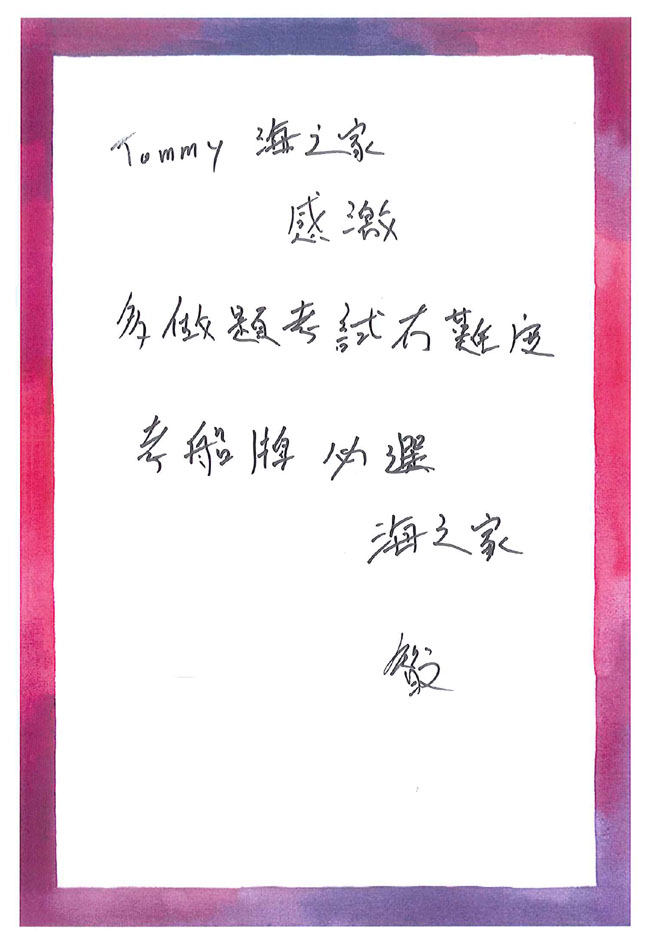 Tommy 海之家
感激
多做題考試有難度
考船牌必選
海之家